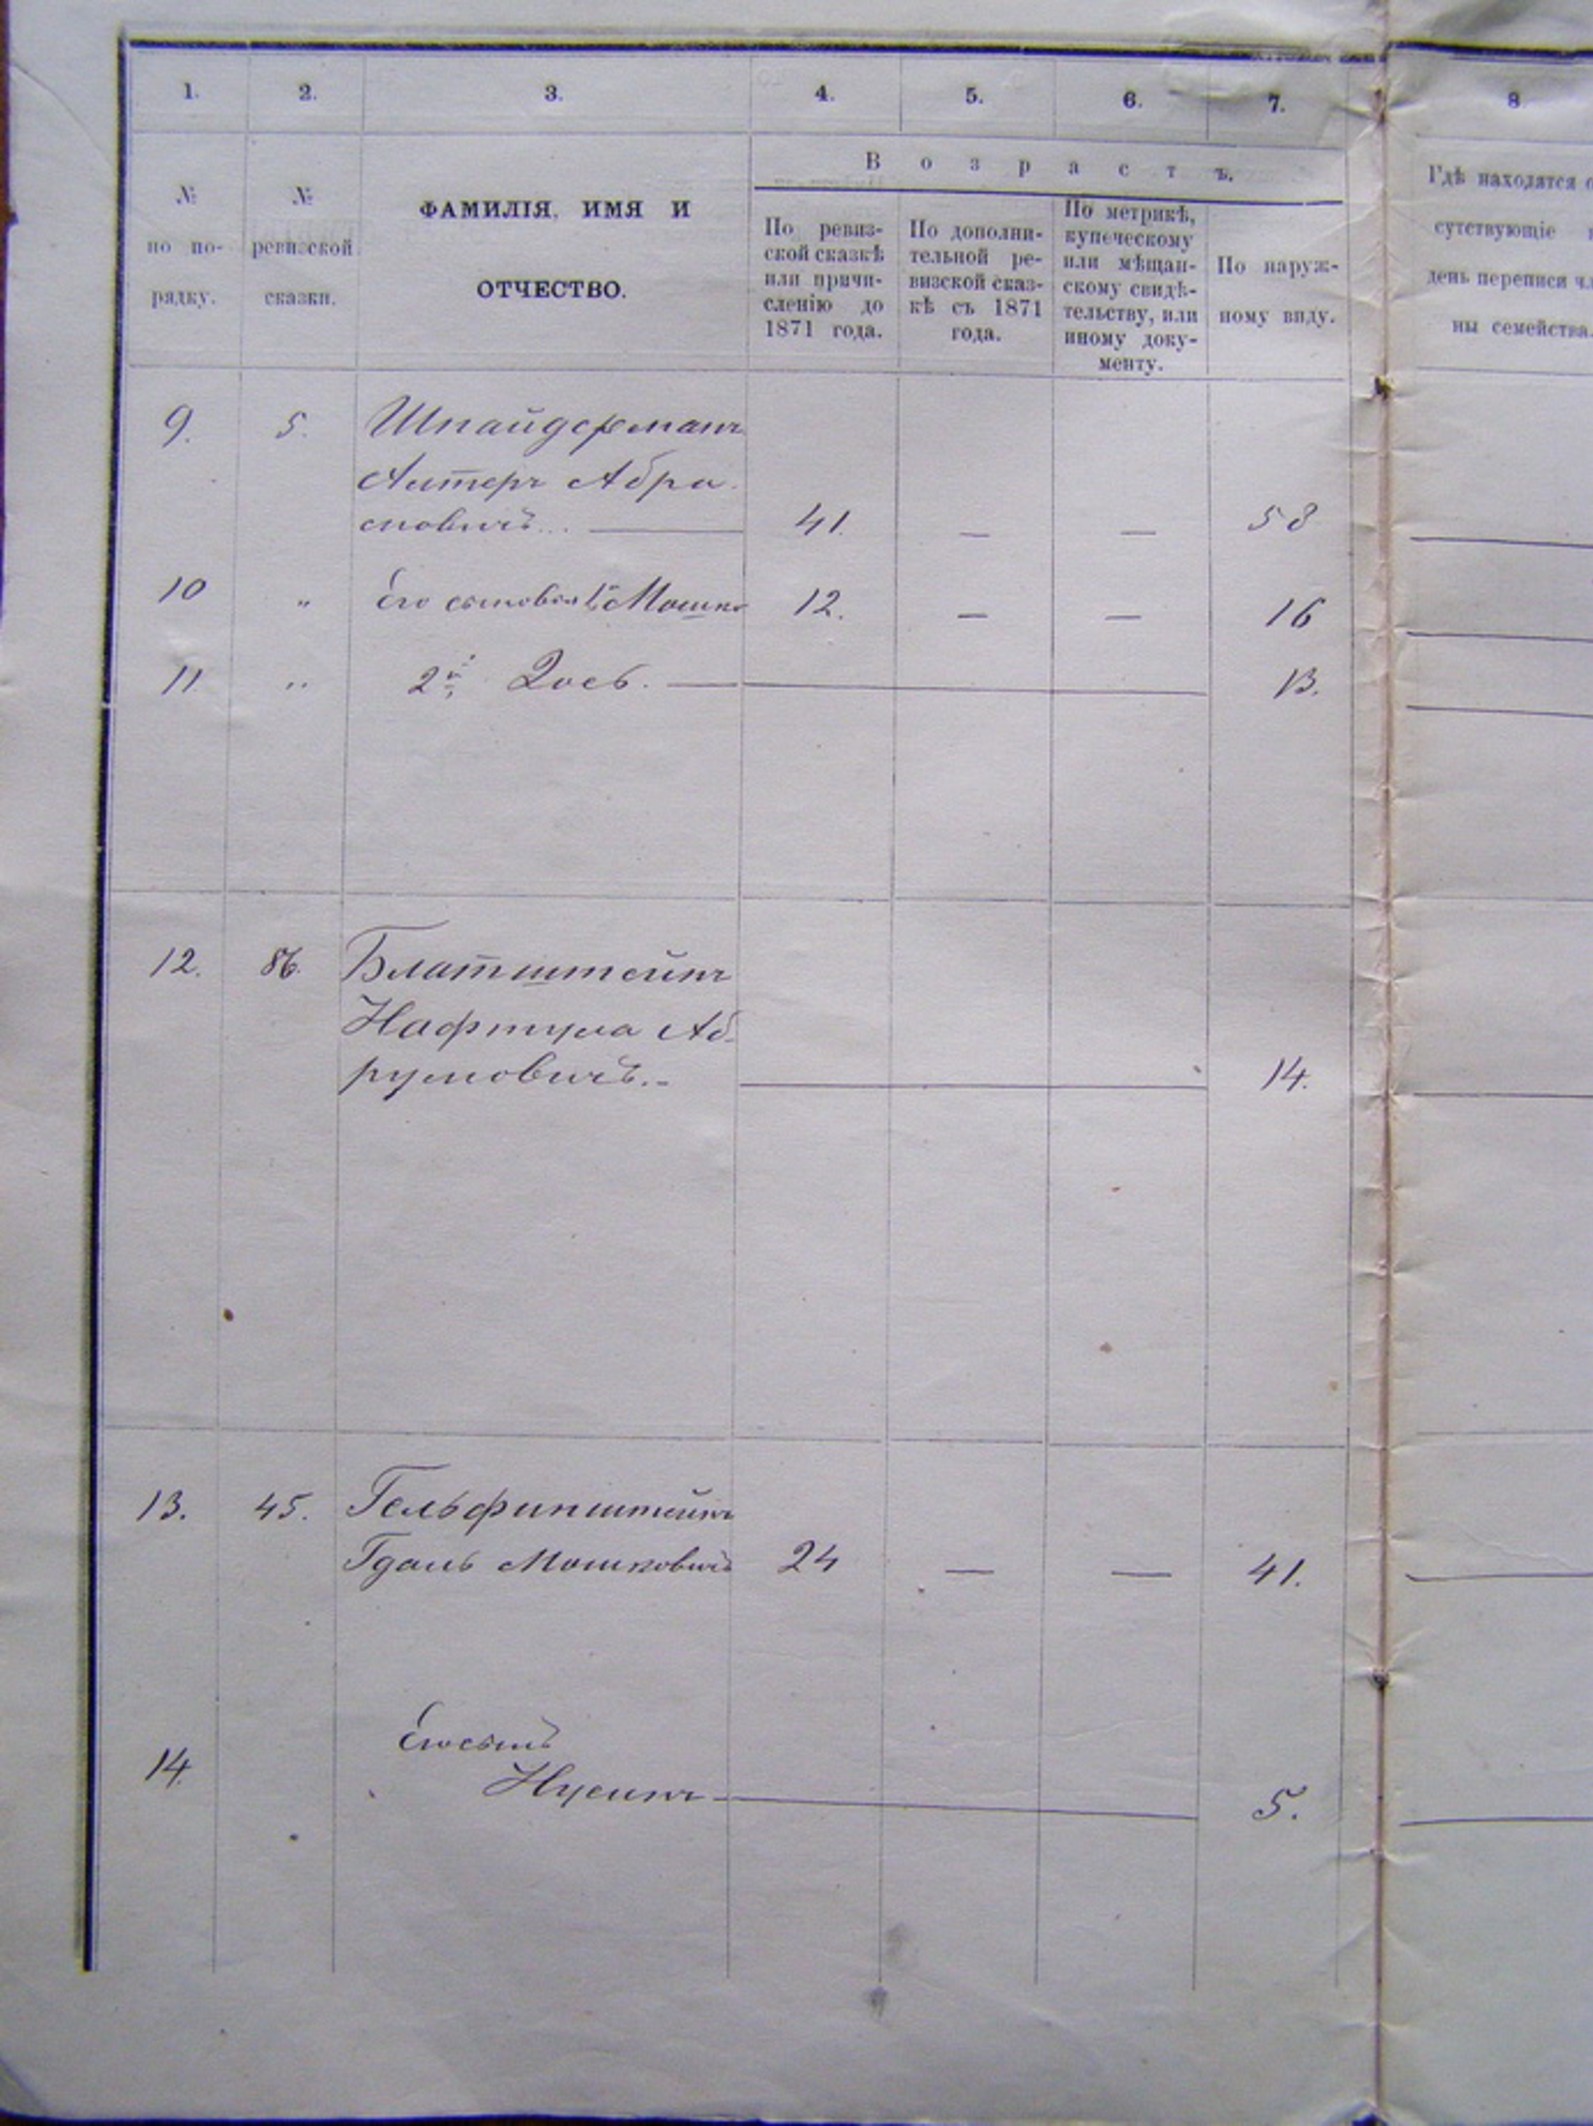 1. 2. 3. 4. 5. 6. 7. 8
Возрастъ.
№
по по-
рядку.
№
ревизской
сказки.
ФАМИЛІЯ, ИМЯ И
ОТЧЕСТВО.
По ревиз-
ской сказкѣ
или причи-
сленію до
1871 года.
По дополни-
тельной ре-
визской сказ-
кѣ съ 1871
года.
По метрикѣ,
купеческому
или мѣщан-
скому свидѣ-
тельству, или
иному доку-
менту.
По наруж-
ному виду.
Гдѣ находятся о
сутствующіе
день переписи чл
ны семейства.
9. 5. Шпайдерманъ
Алтеръ Абра
мовичъ... 41. — — 58
10 „ Его сыновья 1й Мошко 12. — — 16
11 „ 2й 13.
12. 86. Блатштейнъ
Нафтула Аб-
румовичъ.. 14.
13. 45. Гельфинштейнъ
Гдаль Мошковичъ 24 — — 41.
14. Его сынъ
Нусинъ 5.